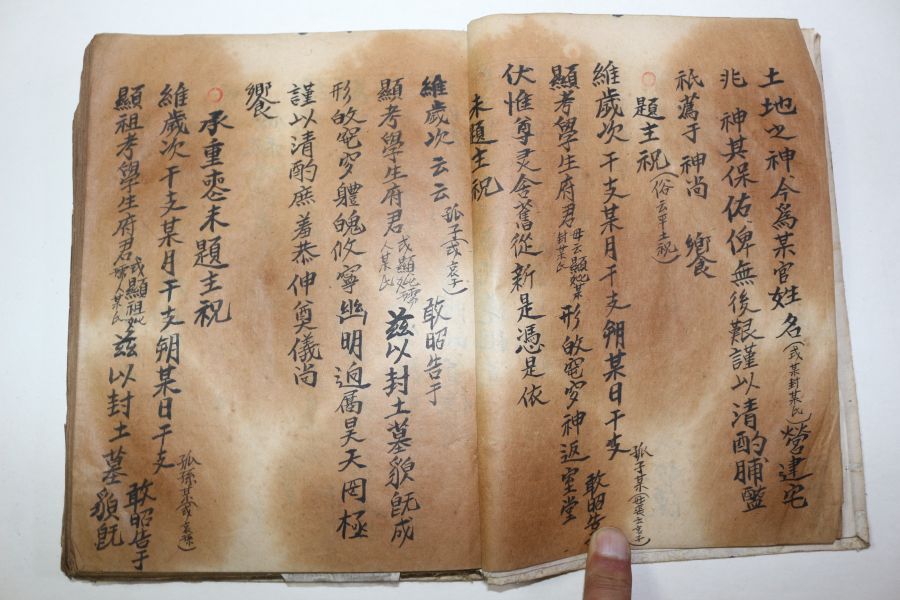 土地之神今爲某官姓名(或某封某氏)營建宅
兆神其保佑俾無後艱謹以清酌脯醢
祇薦于神尚饗
○題主祝(俗云平土祝)
維歲次干支某月干支朔某日干支孤子某(母喪云哀子)敢昭告于
顯考學生府君母云顯妣某封某氏形皈窀穸神返室堂
伏惟尊灵舍舊從新是憑是依
未題主祝
維歲次云云孤子(或哀子)敢昭告于
顯考學生府君或顯妣孺人某氏茲以封土墓貌旣成
形皈窀穸體魄攸寧幽明逈隔昊天罔極
謹以清酌庶羞恭伸奠儀尚
饗
○承重喪未題主祝
維歲次干支某月干支朔某日干支孤孫某(或哀孫)敢昭告于
顯祖考學生府君或顯祖妣孺人某氏茲以封土墓貌旣